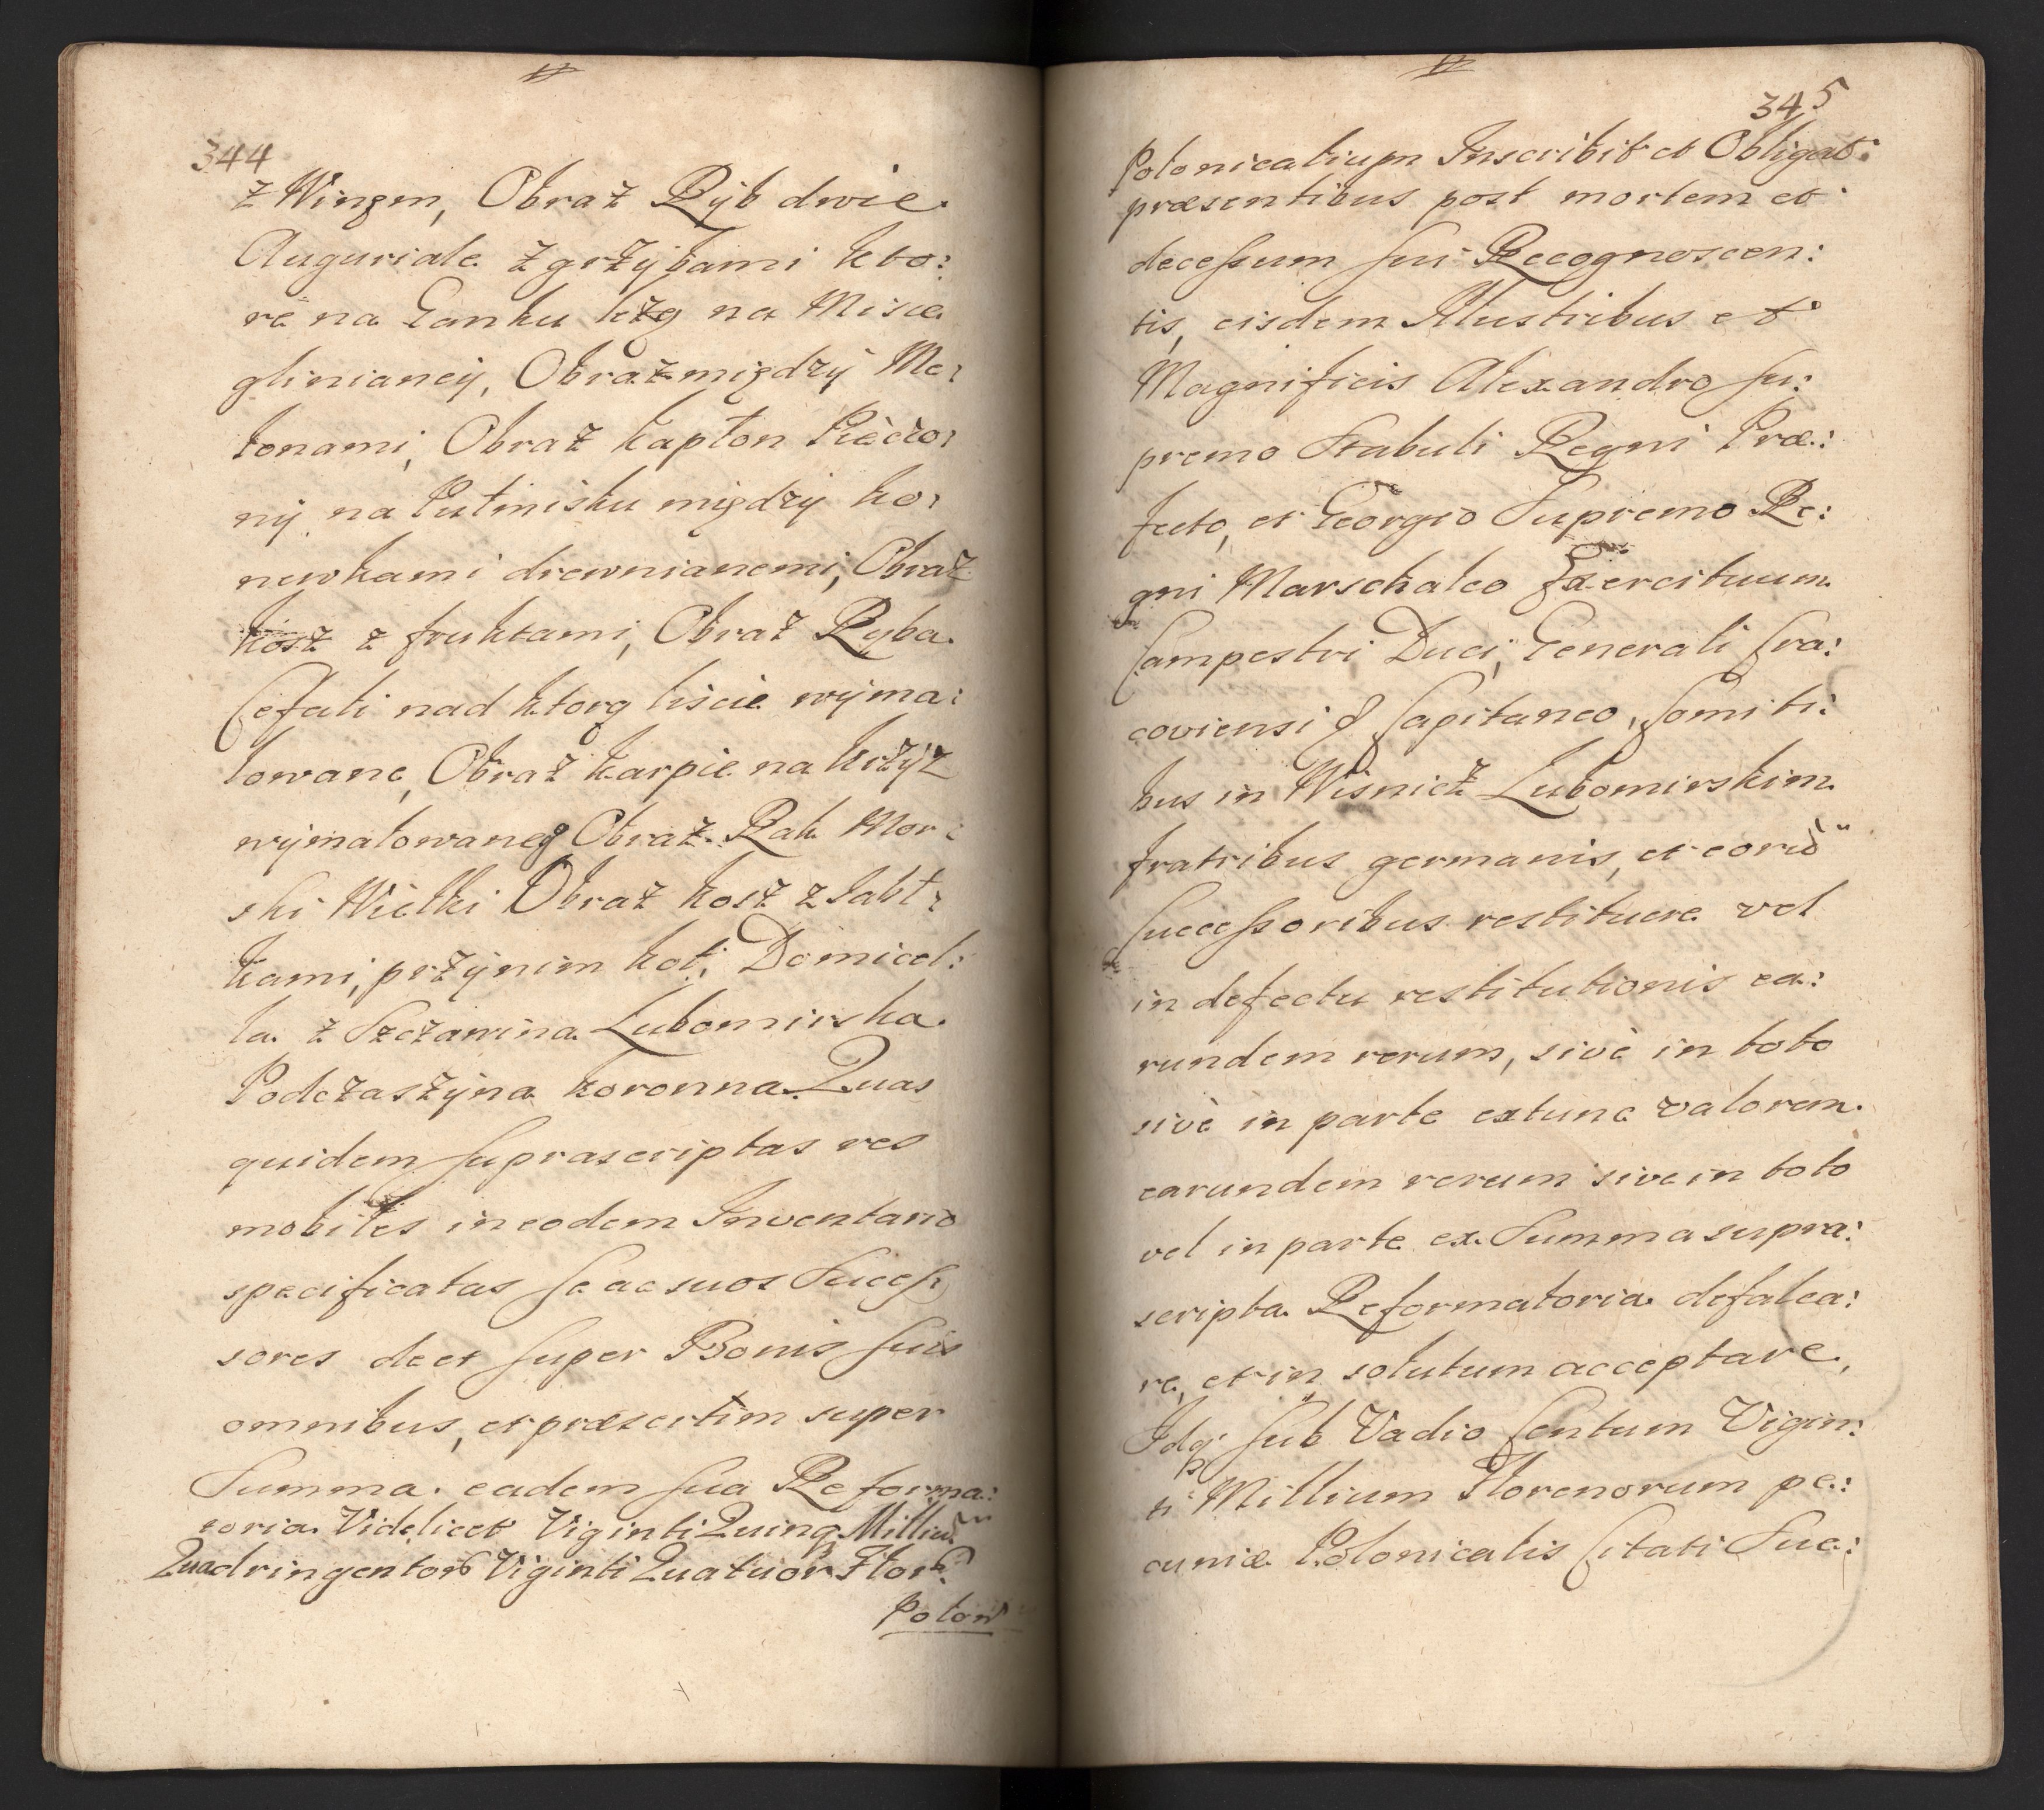 344
z Wingen, Obraz Ryb dwie
Auguriale z grzybami kto:
re na Ganku leżą na Misie
glinianey, Obraz między Me:
lonami, Obraz kapłon Pieczo:
ny na Pułmisku między ko:
newkami drewnianemi, Obraz
kosz z fruktami, Obraz Ryba
Cefali nad ktorą liscie wyma:
lowane, Obraz karpie na krzyz
wymalowaneg Obraz Rak Mor:
ski Wielki Obraz kosz z Jabł:
kami, przynim kot, Domicel:
la z Szczawina Lubomirska
Podczaszyna koronna. Quas
quidem suprascriptas res
mobiles in eodem Inventario
specificatas se ac suos Succes
sores de et super Bonis suis
omnibus, et præsertim super
Summa eadem sua Reforma:
toria Videlicet Viginti Quinq Milliu
Quadringentor Viginti Quatuor Flor:
Polon
345
Polonicalium Inscribit et Obligat
præsentibus post mortem et
decessum sui Recognoscen:
tis, eisdem Illustribus et
Magnificis Alexandro su:
premo Stabuli Regni Præ:
fecto, et Georgio Supremo Re:
gni Marschalco Exercituum
Campestri Duci, Generali Cra:
coviensi & Capitaneo, Comiti:
bus in Wisnicz Lubomirskim
fratribus germanis, et eorū
successoribus restituere vel
in defectu restitutionis ea:
rundem rerum, sivè in toto
sivè in parte extunc valorem
earundem rerum sive in toto
vel in parte ex Summa supra:
scripta Reformatoria defalca:
re, et in solutum acceptare,
Idq sub Vadio Centum Vigin:
ti Millium Florenorum pe:
cuniæ Polonicalis Citati Suc: